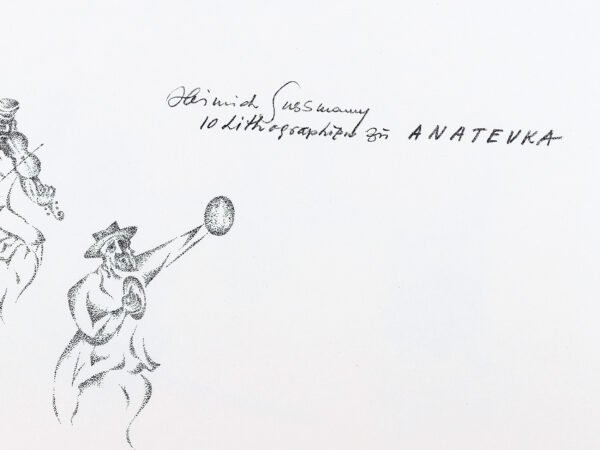 Heinrich Sussmann
10 Lithographien zu ANATEVKA